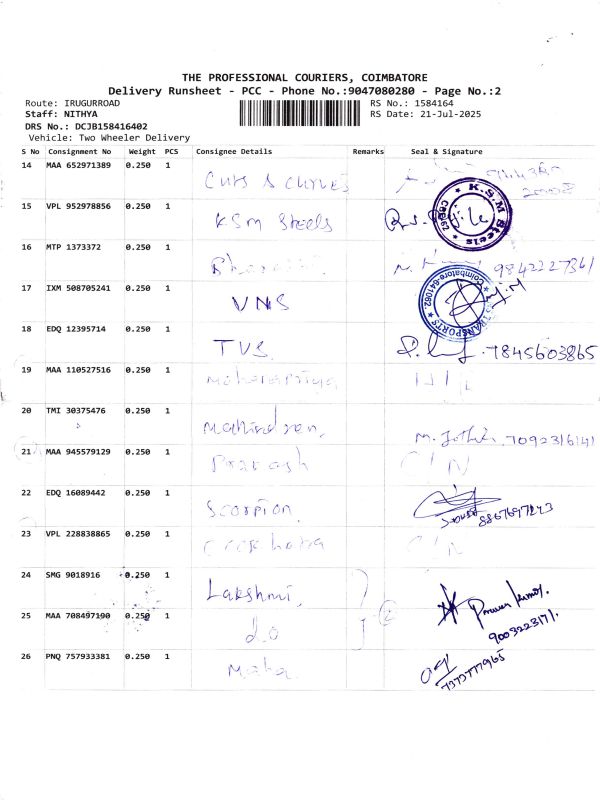 THE PROFESSIONAL COURIERS, COIMBATORE
Delivery Runsheet - PCC - Phone No.:9047080280 - Page No.:2
Route: IRUGURROAD RS No.: 1584164
Staff: NITHYA RS Date: 21-Jul-2025
DRS No.: DCJB158416402
Vehicle: Two Wheeler Delivery
S No Consignment No Weight PCS Consignee Details Remarks Seal & Signature
14 MAA 652971389 0.250 1 Cuts & Curves
15 VPL 952978856 0.250 1 KSM Steels K.S.M Steels
16 MTP 1373372 0.250 1 9842227361
17 IXM 508705241 0.250 1 VNS TRANSPORTS Coimbatore-641062.
18 EDQ 12395714 0.250 1 TVS. 7845603865
19 MAA 110527516 0.250 1
20 TMI 30375476 0.250 1 Mahindren. 7092316141
21 MAA 945579129 0.250 1 Prakash
22 EDQ 16089442 0.250 1 Scorpion.
23 VPL 228838865 0.250 1
24 SMG 9018916 0.250 1 Lakshmi. 9003223171.
25 MAA 708497190 0.250 1 do
26 PNQ 757933381 0.250 1 Maha. 7373777965